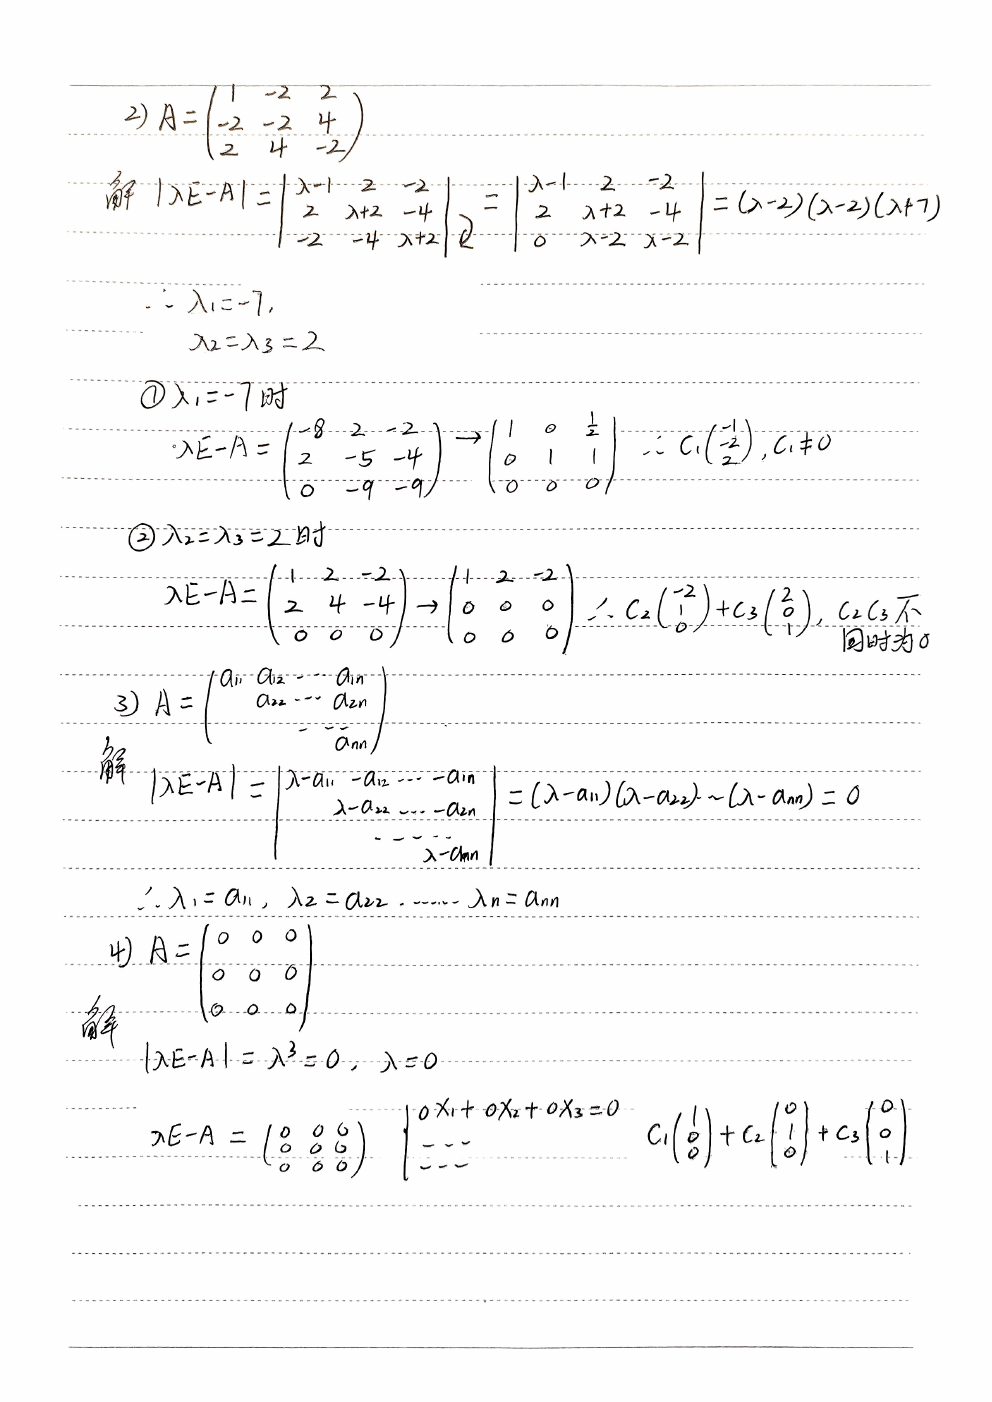 2) A = \begin{pmatrix} 1 & -2 & 2 \\ -2 & -2 & 4 \\ 2 & 4 & -2 \end{pmatrix}
解 |λE-A| = \begin{vmatrix} λ-1 & 2 & -2 \\ 2 & λ+2 & -4 \\ -2 & -4 & λ+2 \end{vmatrix} = \begin{vmatrix} λ-1 & 2 & -2 \\ 2 & λ+2 & -4 \\ 0 & λ-2 & λ-2 \end{vmatrix} = (λ-2)(λ-2)(λ+7)
∴ λ₁=-7,
λ₂=λ₃=2
① λ₁=-7时
λE-A = \begin{pmatrix} -8 & 2 & -2 \\ 2 & -5 & -4 \\ 0 & -9 & -9 \end{pmatrix} → \begin{pmatrix} 1 & 0 & \frac{1}{2} \\ 0 & 1 & 1 \\ 0 & 0 & 0 \end{pmatrix} ∴ C₁\begin{pmatrix} -1 \\ -2 \\ 2 \end{pmatrix}, C₁≠0
② λ₂=λ₃=2时
λE-A = \begin{pmatrix} 1 & 2 & -2 \\ 2 & 4 & -4 \\ 0 & 0 & 0 \end{pmatrix} → \begin{pmatrix} 1 & 2 & -2 \\ 0 & 0 & 0 \\ 0 & 0 & 0 \end{pmatrix} ∴ C₂\begin{pmatrix} -2 \\ 1 \\ 0 \end{pmatrix} + C₃\begin{pmatrix} 2 \\ 0 \\ 1 \end{pmatrix}, C₂C₃不
同时为0
3) A = \begin{pmatrix} a₁₁ & a₁₂ & ⋯ & a₁ₙ \\ & a₂₂ & ⋯ & a₂ₙ \\ & & ⋯ & \\ & & & aₙₙ \end{pmatrix}
解 |λE-A| = \begin{vmatrix} λ-a₁₁ & -a₁₂ & ⋯ & -a₁ₙ \\ & λ-a₂₂ & ⋯ & -a₂ₙ \\ & & ⋯ & \\ & & & λ-aₙₙ \end{vmatrix} = (λ-a₁₁)(λ-a₂₂)⋯(λ-aₙₙ) = 0
∴ λ₁=a₁₁, λ₂=a₂₂ ⋯⋯ λₙ=aₙₙ
4) A = \begin{pmatrix} 0 & 0 & 0 \\ 0 & 0 & 0 \\ 0 & 0 & 0 \end{pmatrix}
解
|λE-A| = λ³ = 0, λ=0
λE-A = \begin{pmatrix} 0 & 0 & 0 \\ 0 & 0 & 0 \\ 0 & 0 & 0 \end{pmatrix} \begin{cases} 0x₁+0x₂+0x₃=0 \\ --- \\ --- \end{cases} C₁\begin{pmatrix} 1 \\ 0 \\ 0 \end{pmatrix} + C₂\begin{pmatrix} 0 \\ 1 \\ 0 \end{pmatrix} + C₃\begin{pmatrix} 0 \\ 0 \\ 1 \end{pmatrix}